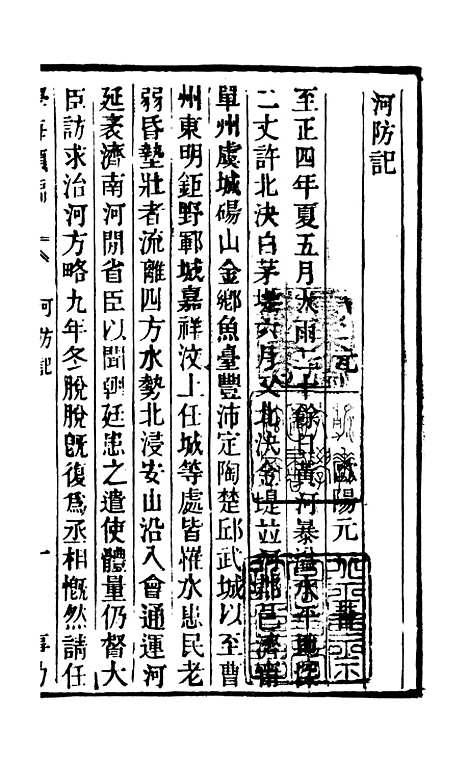 河防記
元 歐陽元
至正四年夏五月大雨二十餘日黃河暴溢水平地深
二丈許北決白茅堤六月又北決金堤並河郡邑濟寧
單州虞城碭山金鄉魚臺豐沛定陶楚邱武城以至曹
州東明鉅野鄆城嘉祥汶上任城等處皆罹水患民老
弱昏墊壯者流離四方水勢北浸安山沿入會通運河
延袤濟南河閒省臣以聞朝廷患之遣使體量仍督大
臣訪求治河方略九年冬脫脫旣復爲丞相慨然請任
河防記 一